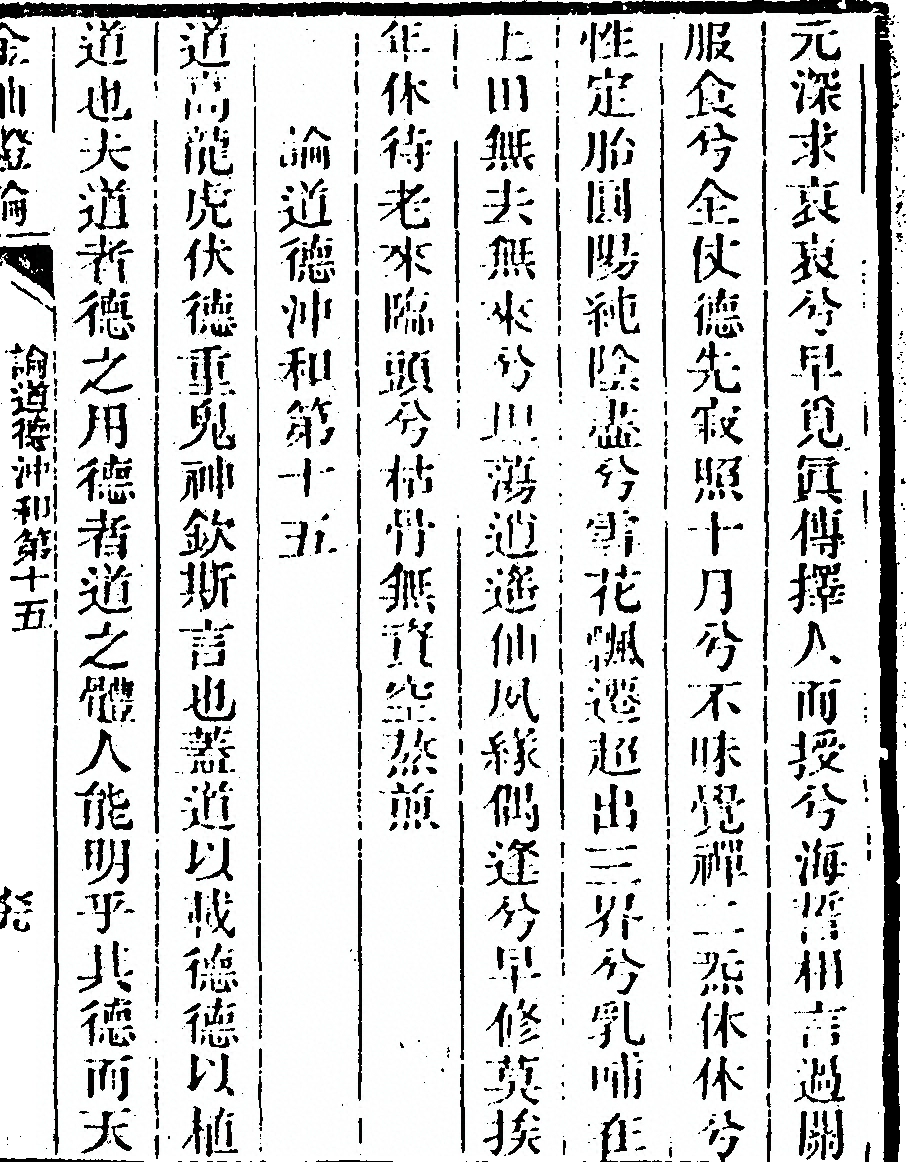 元深求哀哀兮早覓眞傳擇人而授兮海誓相言過關
服食兮全仗德先寂照十月兮不昧覺禪二炁休休兮
性定胎圓陽純陰盡兮雪花飄遷超出三界兮乳哺在
上田無去無來兮坦蕩逍遙仙夙緣偶逢兮早修莫挨
年休待老來臨頭兮枯骨無資空熬煎
論道德沖和第十五
道高龍虎伏德重鬼神欽斯言也蓋道以載德德以植
道也夫道者德之用德者道之體人能明乎其德而天
金仙證論
論道德沖和第十五